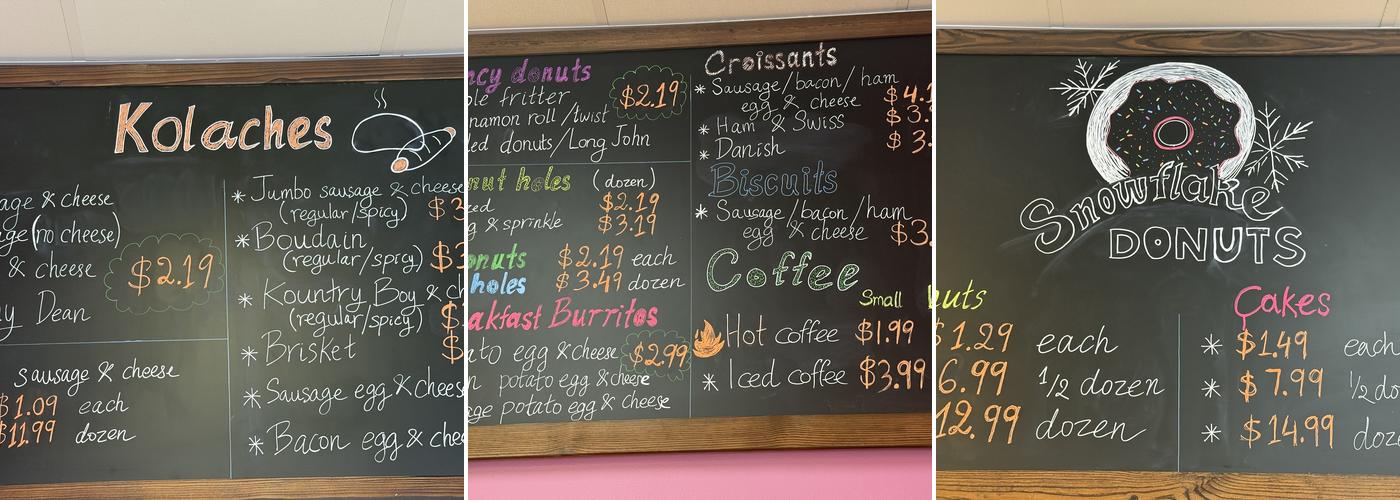 Kolaches
age & cheese
ge (no cheese)
& cheese
y Dean
$2.19
sausage & cheese
$1.09 each
$11.99 dozen
* Jumbo sausage & cheese
(regular/spicy) $3
* Boudain
(regular/spicy) $3
* Kountry Boy & c
(regular/spicy) $
* Brisket $
* Sausage egg & cheese
* Bacon egg & chee
ncy donuts
ple fritter
nnamon roll /twist
ed donuts/Long John
$2.19
nut holes (dozen)
zed $2.19
g & sprinkle $3.19
onuts $2.19 each
holes $3.49 dozen
akfast Burritos
ato egg & cheese $2.99
n potato egg & cheese
age potato egg & cheese
Croissants
* Sausage/bacon/ham
egg & cheese $4.1
* Ham & Swiss $3.
* Danish $3.
Biscuits
* Sausage/bacon/ham
egg & cheese $3.
Coffee
Small
Hot coffee $1.99
* Iced coffee $3.99
Snowflake
DONUTS
nuts
$1.29 each
6.99 1/2 dozen
12.99 dozen
Cakes
* $1.49 each
* $7.99 1/2 do
* $14.99 doz